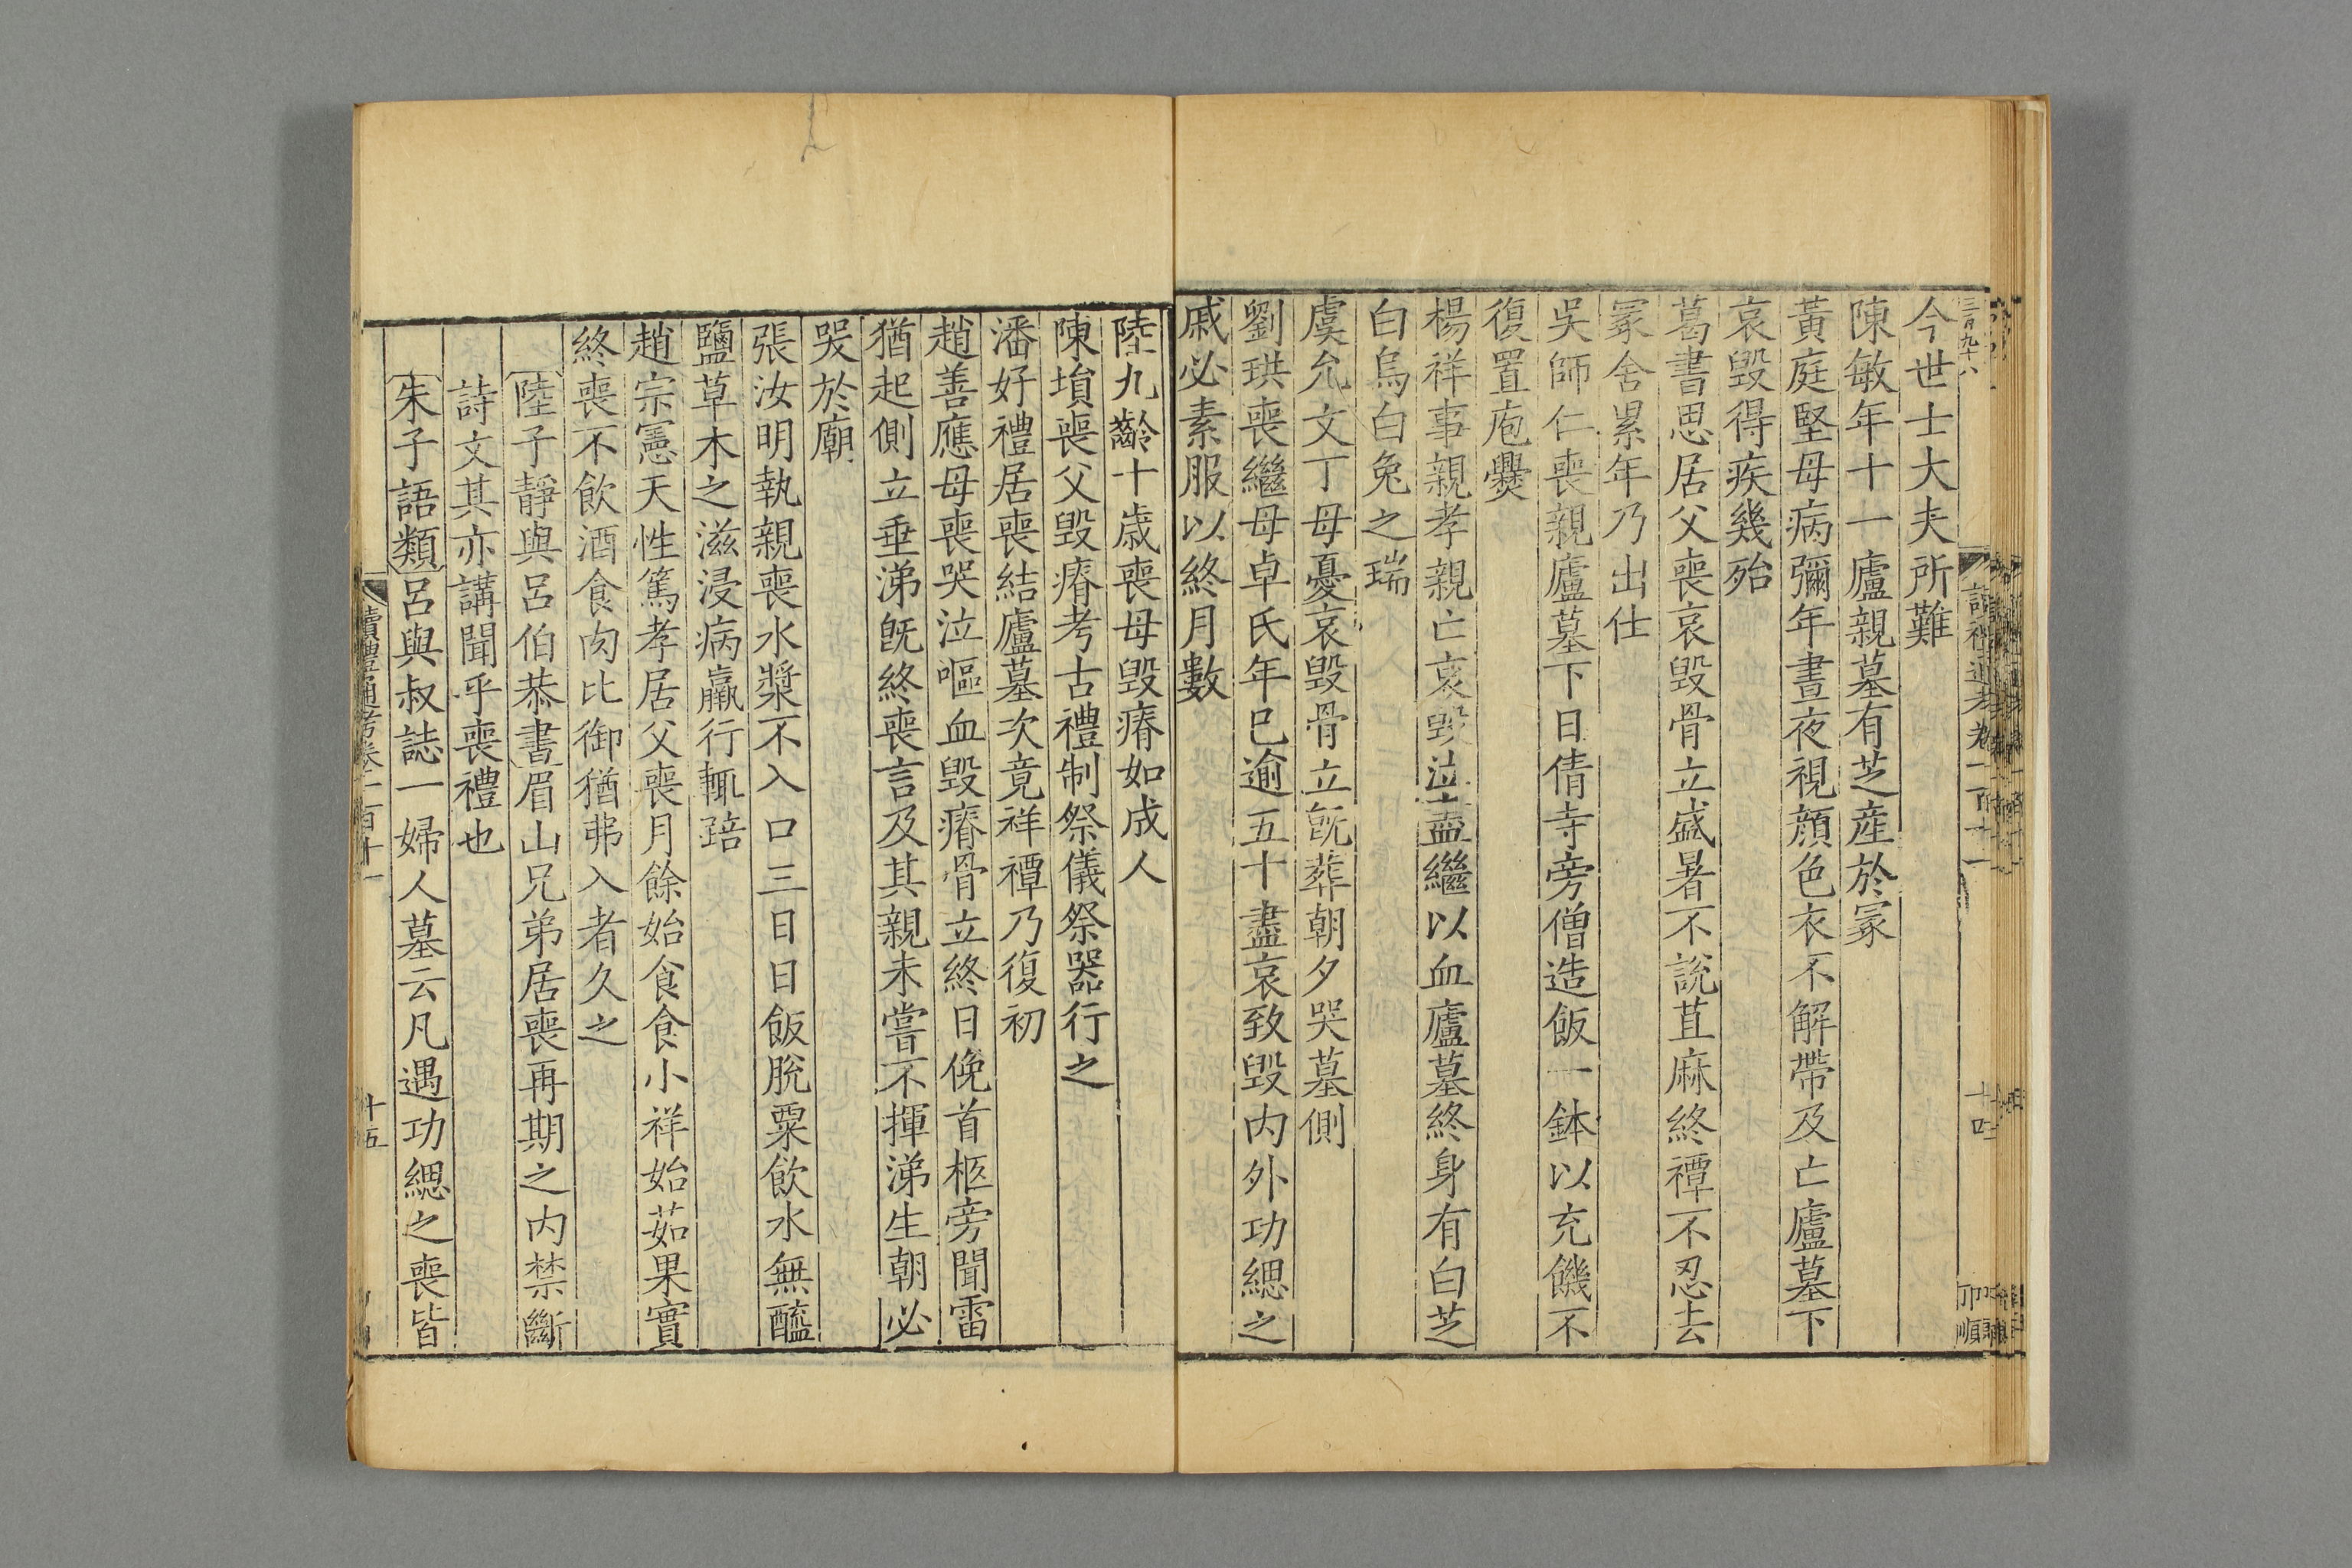 今世士大夫所難
陳敏年十一廬親墓有芝產於冢
黃庭堅母病彌年晝夜視顏色衣不解帶及亡廬墓下
哀毀得疾幾殆
葛書思居父喪哀毀骨立盛暑不說苴麻終禫不忍去
冢舍累年乃出仕
吳師仁喪親廬墓下日倩寺旁僧造飯一鉢以充饑不
復置庖爨
楊祥事親孝親亡哀毀泣盡繼以血廬墓終身有白芝
白烏白兔之瑞
虞允文丁母憂哀毀骨立旣葬朝夕哭墓側
劉珙喪繼母卓氏年巳逾五十盡哀致毀内外功緦之
戚必素服以終月數
陸九齡十歳喪母毀瘠如成人
陳塤喪父毀瘠考古禮制祭儀祭器行之
潘好禮居喪結廬墓次竟祥禫乃復初
趙善應母喪哭泣嘔血毀瘠骨立終日俛首柩旁聞雷
猶起側立垂涕旣終喪言及其親未嘗不揮涕生朝必
哭於廟
張汝明執親喪水漿不入口三日日飯脫粟飲水無醯
鹽草木之滋浸病羸行輒踣
趙宗憲天性篤孝居父喪月餘始食食小祥始茹果實
終喪不飲酒食肉比御猶弗入者久之
陸子靜與呂伯恭書眉山兄弟居喪再期之内禁斷
詩文其亦講聞乎喪禮也
朱子語類呂與叔誌一婦人墓云凡遇功緦之喪皆
讀禮通考卷一百十一
十五